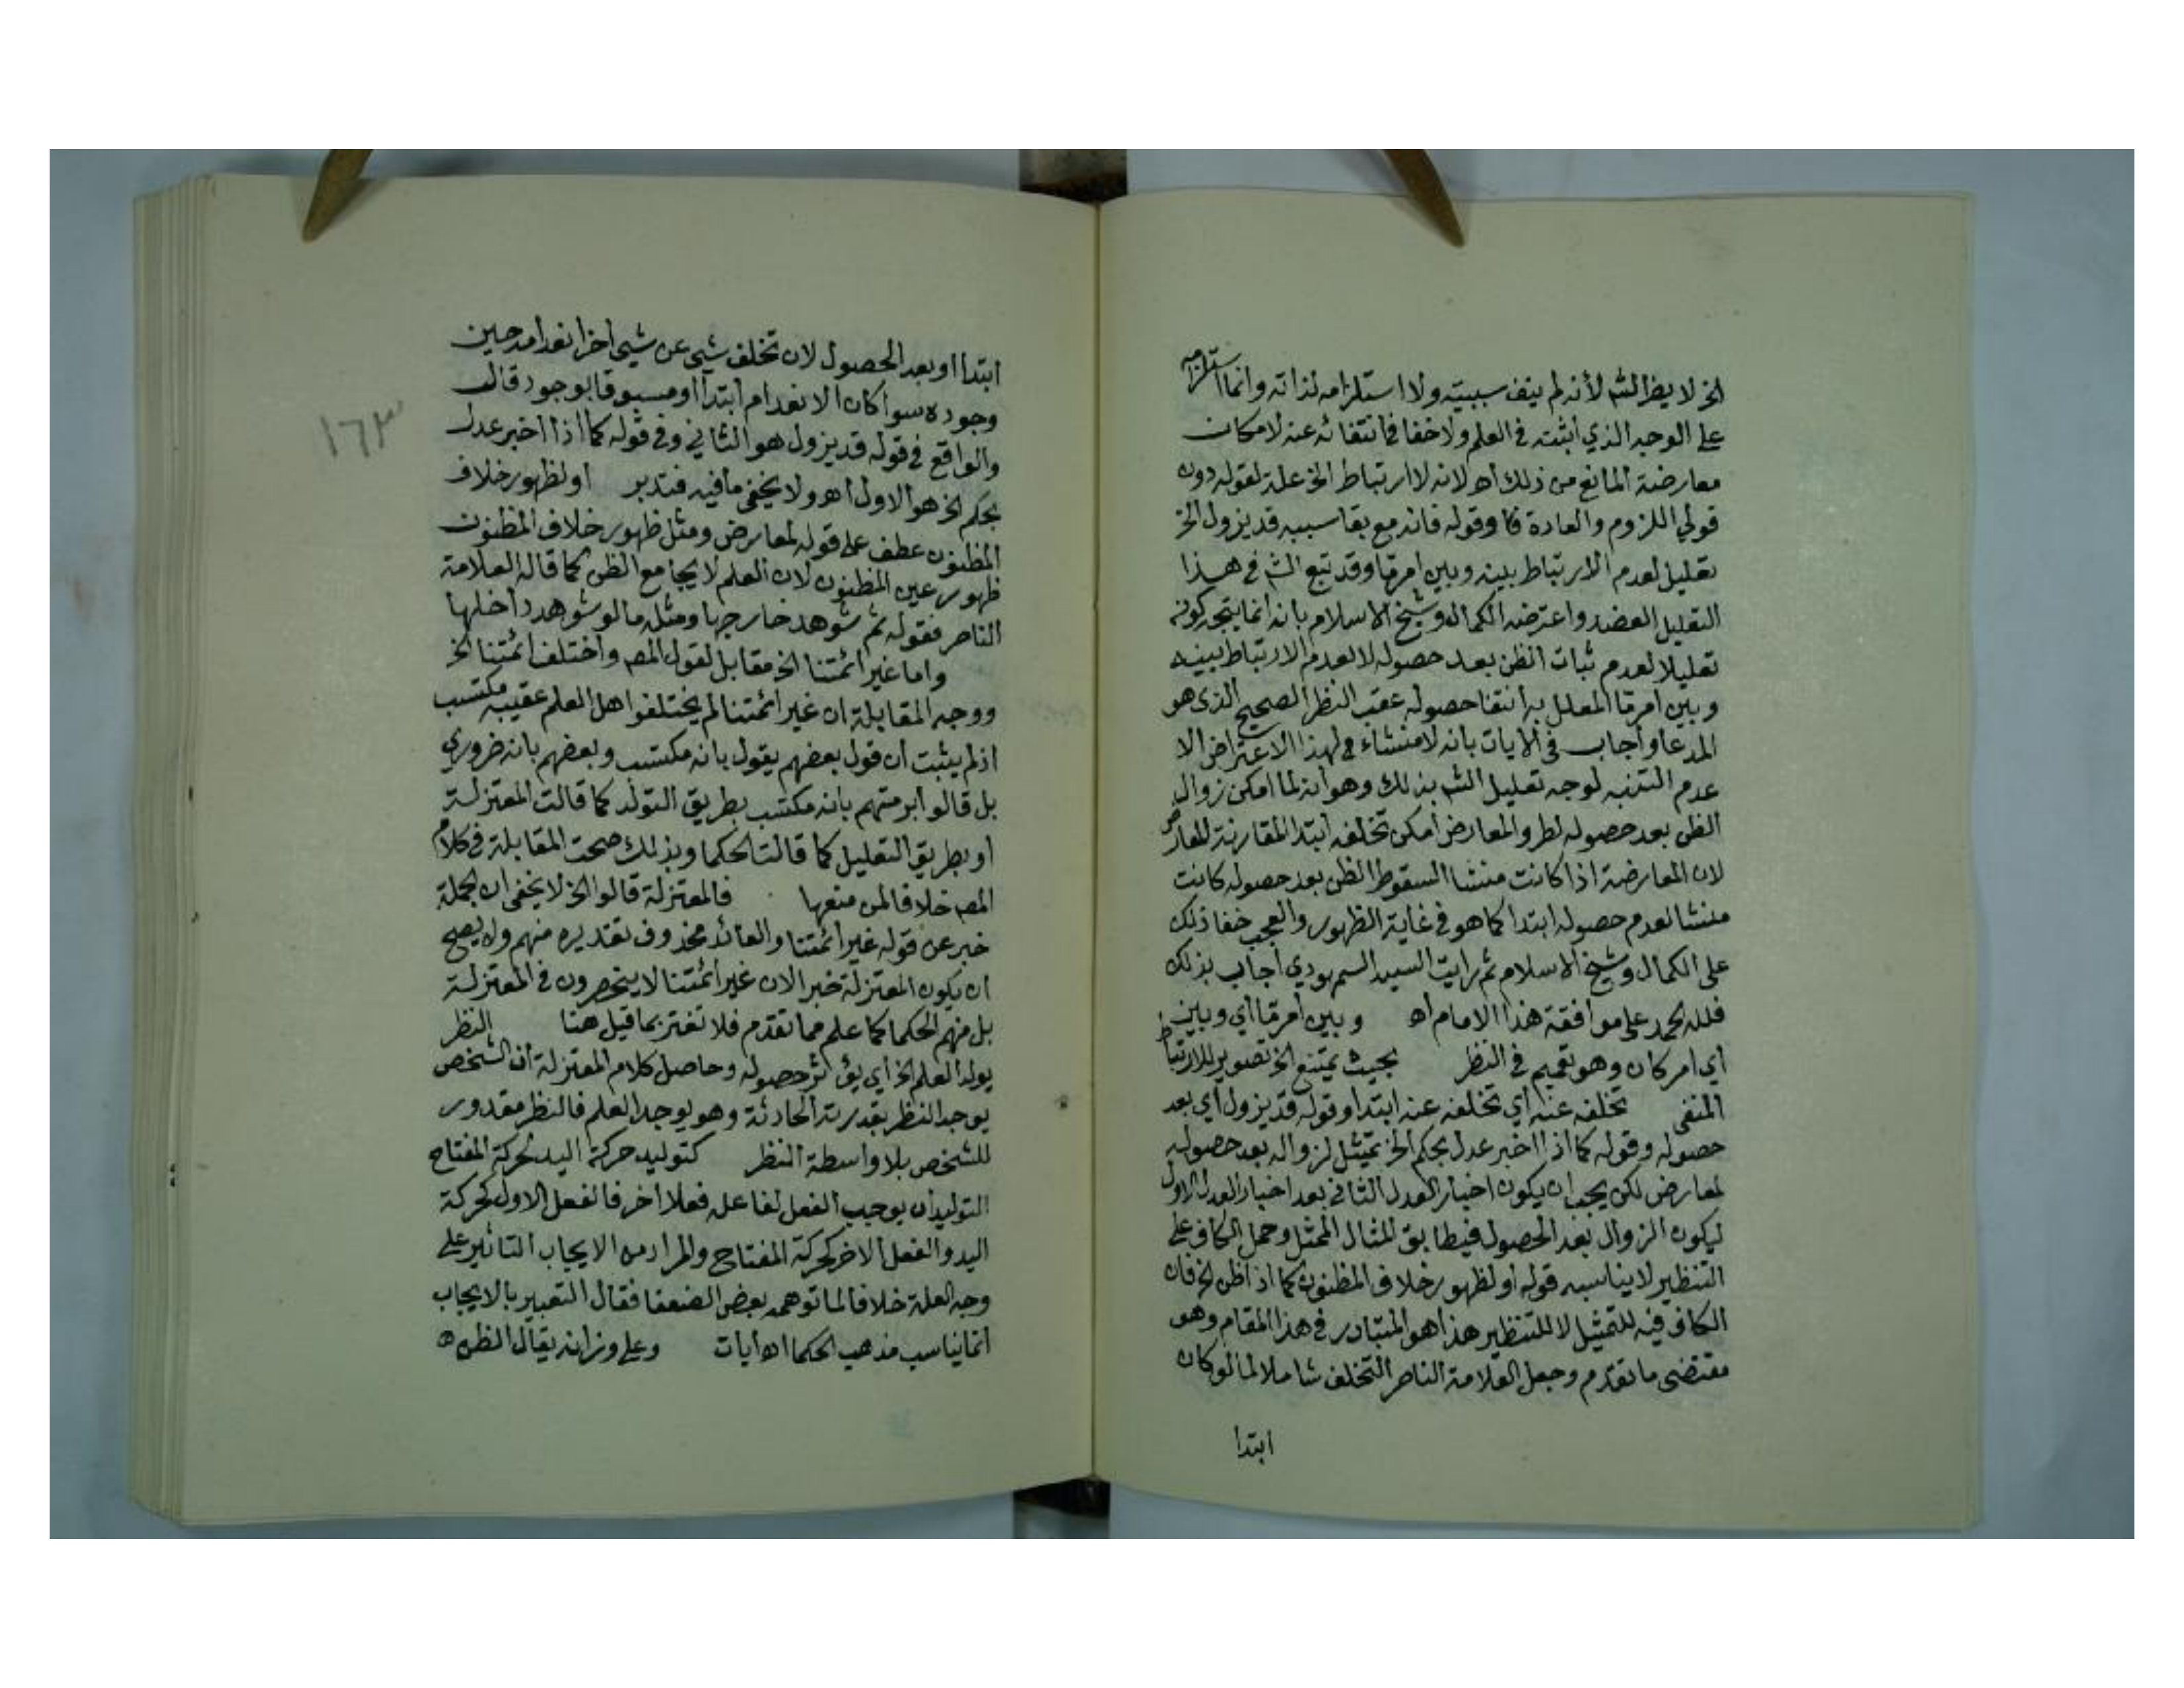 الخ لا يضر الشم لأنه لم ينف سببيته ولا استلزامه لذاته وانما استلزامه
على الوجه الذي اثبته في العلم ولا خفا في انتفائه عنه لامكان
معارضة المانع من ذلك اه لانه لا ارتباط الخ علة لقوله دون
قولي اللزوم والعادة فا وقوله فانه مع بقا سببه قد يزول الخ
تعليل لعدم الارتباط بينه وبين امر ما وقد تبع الشم في هذا
التعليل العضد واعترضه الكمال وشيخ الاسلام بانه انما يتجه كونه
تعليلا لعدم ثبات الظن بعد حصوله لا لعدم الارتباط بينه
وبين امر ما المعلل به انتفا حصوله عقب النظر الصحيح الذي هو
المدعا واجاب في الايات بانه لا منشاء لهذا الاعتراض الا
عدم التنبه لوجه تعليل الشم بذلك وهو انه لما امكن زوال
الظن بعد حصوله لطرو المعارض امكن تخلفه ابتدا لمقارنة المعارض
لان المعارضة اذا كانت منشا السقوط الظن بعد حصوله كانت
منشا لعدم حصوله ابتدا كما هو في غاية الظهور والعجب خفا ذلك
على الكمال وشيخ الاسلام ثم رايت السيد السمهودي اجاب بذلك
فلله الحمد على موافقة هذا الامام اه وبين امر ما اي وبين
اي امر كان وهو تعميم في النظر بحيث يمتنع الخ تصوير للارتباط
المنفى تخلفه عنه اي تخلفه عنه ابتدا وقوله قد يزول اي بعد
حصوله وقوله كما اذا اخبر عدل بحكم الخ تمثيل لزواله بعد حصوله
لمعارض لكن يجب ان يكون اخبار العدل الثاني بعد اخبار العدل الاول
ليكون الزوال بعد الحصول فيطابق المثال الممثل وحمل الكاف على
التنظير لا يناسبه قوله او لظهور خلاف المظنون كما اذا ظن الخ فان
الكاف فيه للتمثيل لا للتنظير هذا هو المتبادر في هذا المقام وهو
مقتضى ما تقدم وجعل العلامة الناصر التخلف شاملا لما لو كان
ابتدا
١٦٣
ابتدا او بعد الحصول لان تخلف شيء عن شيء اخر انعدامه حين
وجوده سوا كان الانعدام ابتدا او مسبوقا بوجود قال
والواقع في قوله قد يزول هو الثاني وفي قوله كما اذا اخبر عدل
بحكم الخ هو الاول اه ولا يخفى ما فيه فتدبر او لظهور خلاف
المظنون عطف على قوله لمعارض ومثل ظهور خلاف المظنون
ظهور عين المظنون لان العلم لا يجامع الظن كما قاله العلامة
الناصر فقوله ثم شوهد خارجها ومثله ما لو شوهد داخلها
واما غير ائمتنا الخ مقابل لقول المص واختلف ائمتنا الخ
ووجه المقابلة ان غير ائمتنا لم يختلفوا هل العلم عقيبه مكتسب
اذ لم يثبت ان قول بعضهم يقول بانه مكتسب وبعضهم بانه ضروري
بل قالوا برمتهم بانه مكتسب بطريق التولد كما قالت المعتزلة
او بطريق التعليل كما قالت الحكما وبذلك صحت المقابلة في كلام
المص خلافا لمن منعها فالمعتزلة قالوا الخ لا يخفى ان الجملة
خبر عن قوله غير ائمتنا والعائد محذوف تقديره منهم ولا يصح
ان يكون المعتزلة خبرا لان غير ائمتنا لا ينحصرون في المعتزلة
بل منهم الحكما كما علم مما تقدم فلا تغتر بما قيل هنا النظر
يولد العلم الخ اي يؤثر حصوله وحاصل كلام المعتزلة ان الشخص
يوجد النظر بقدرته الحادثة وهو يوجد العلم فالنظر مقدور
للشخص بلا واسطة النظر كتوليد حركة اليد لحركة المفتاح
التوليد ان يوجب الفعل لفاعله فعلا اخر فالفعل الاول كحركة
اليد والفعل الاخر كحركة المفتاح والمراد من الايجاب التاثير على
وجه العلة خلافا لما توهمه بعض الضعفا فقال التعبير بالايجاب
انما يناسب مذهب الحكما اه ايات وعلى وزانه يقال الظن اه